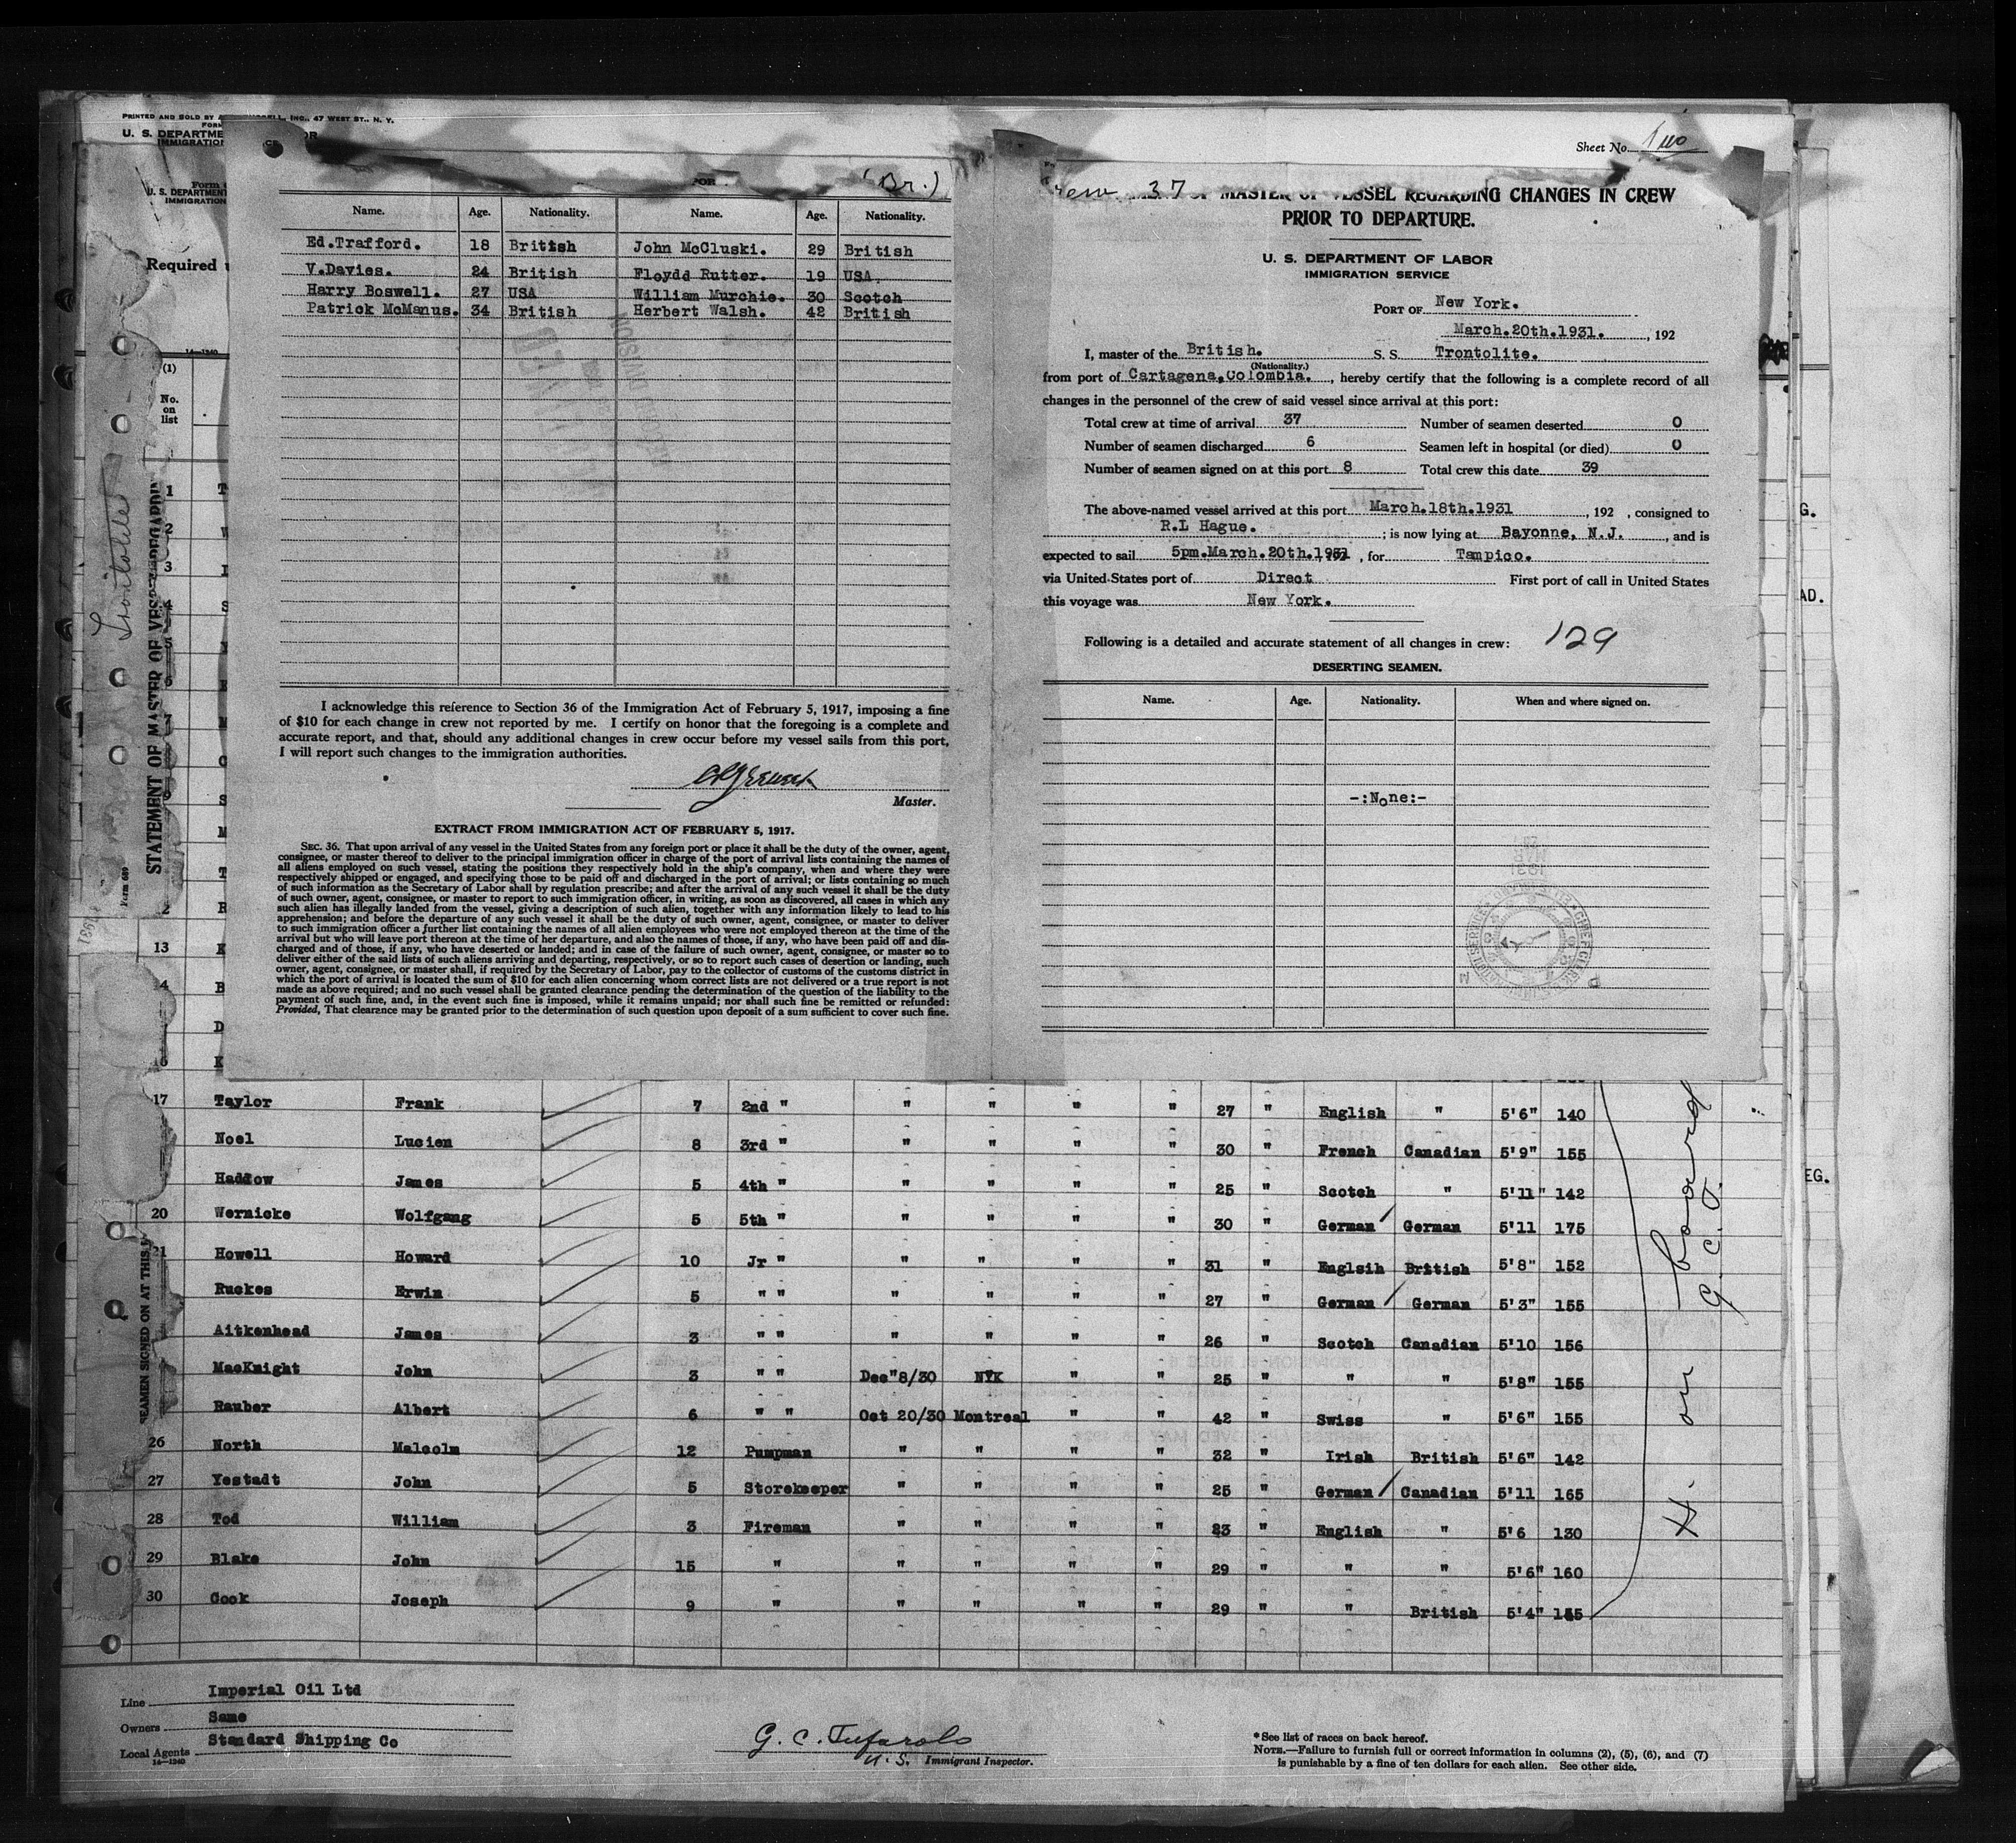 PRINTED AND SOLD BY
INC., 47 WEST ST., N. Y.
U. S. DEPARTME
IMMIGRATION
U. S. DEPARTMENT
IMMIGRATION
Required
14—1240
(1)
No.
on
list
Trontolite
STATEMENT OF MASTER OF VESSEL REGARDIN
Form 689
SEAMEN SIGNED ON AT THIS
(Br.)
Name. Age. Nationality. Name. Age. Nationality.
Ed.Trafford. 18 British John McCluski. 29 British
V.Davies. 24 British Floydd Rutter. 19 USA.
Harry Boswell. 27 USA William Murchie. 30 Scotch
Patrick McManus. 34 British Herbert Walsh. 42 British
I acknowledge this reference to Section 36 of the Immigration Act of February 5, 1917, imposing a fine
of $10 for each change in crew not reported by me. I certify on honor that the foregoing is a complete and
accurate report, and that, should any additional changes in crew occur before my vessel sails from this port,
I will report such changes to the immigration authorities.
Master.
EXTRACT FROM IMMIGRATION ACT OF FEBRUARY 5, 1917.
SEC. 36. That upon arrival of any vessel in the United States from any foreign port or place it shall be the duty of the owner, agent,
consignee, or master thereof to deliver to the principal immigration officer in charge of the port of arrival lists containing the names of
all aliens employed on such vessel, stating the positions they respectively hold in the ship's company, when and where they were
respectively shipped or engaged, and specifying those to be paid off and discharged in the port of arrival; or lists containing so much
of such information as the Secretary of Labor shall by regulation prescribe; and after the arrival of any such vessel it shall be the duty
of such owner, agent, consignee, or master to report to such immigration officer, in writing, as soon as discovered, all cases in which any
such alien has illegally landed from the vessel, giving a description of such alien, together with any information likely to lead to his
apprehension; and before the departure of any such vessel it shall be the duty of such owner, agent, consignee, or master to deliver
to such immigration officer a further list containing the names of all alien employees who were not employed thereon at the time of the
arrival but who will leave port thereon at the time of her departure, and also the names of those, if any, who have been paid off and dis-
charged and of those, if any, who have deserted or landed; and in case of the failure of such owner, agent, consignee, or master so to
deliver either of the said lists of such aliens arriving and departing, respectively, or so to report such cases of desertion or landing, such
owner, agent, consignee, or master shall, if required by the Secretary of Labor, pay to the collector of customs of the customs district in
which the port of arrival is located the sum of $10 for each alien concerning whom correct lists are not delivered or a true report is not
made as above required; and no such vessel shall be granted clearance pending the determination of the question of the liability to the
payment of such fine, and, in the event such fine is imposed, while it remains unpaid; nor shall such fine be remitted or refunded:
Provided, That clearance may be granted prior to the determination of such question upon deposit of a sum sufficient to cover such fine.
Sheet No. Two
Crew 37
MASTER OF VESSEL REGARDING CHANGES IN CREW
PRIOR TO DEPARTURE.
U. S. DEPARTMENT OF LABOR
IMMIGRATION SERVICE
PORT OF New York.
March.20th.1931., 192
I, master of the British. S. S. Trontolite.
(Nationality.)
from port of Cartagena,Colombia., hereby certify that the following is a complete record of all
changes in the personnel of the crew of said vessel since arrival at this port:
Total crew at time of arrival 37 Number of seamen deserted 0
Number of seamen discharged 6 Seamen left in hospital (or died) 0
Number of seamen signed on at this port 8 Total crew this date 39
The above-named vessel arrived at this port March.18th.1931, 192 , consigned to
R.L Hague. ; is now lying at Bayonne, N.J. , and is
expected to sail 5pm.March.20th.1931 , for Tampico.
via United States port of Direct First port of call in United States
this voyage was New York.
Following is a detailed and accurate statement of all changes in crew: 129
DESERTING SEAMEN.
Name. Age. Nationality. When and where signed on.
-:None:-
17 Taylor Frank 7 2nd " " " " " 27 " English " 5'6" 140
Noel Lucien 8 3rd " " " " " 30 " French Canadian 5'9" 155
Haddow James 5 4th " " " " " 25 " Scotch " 5'11" 142
20 Wernicke Wolfgang 5 5th " " " " " 30 " German German 5'11 175
21 Howell Howard 10 Jr " " " " " 31 " Englsih British 5'8" 152
Ruckes Erwin 5 " " " " " " 27 " German German 5'3" 155
Aitkenhead James 3 " " " " " " 26 " Scotch Canadian 5'10 156
MacKnight John 3 " " Dec"8/30 NYK " " 25 " " " 5'8" 155
Rauber Albert 6 " " Oct 20/30 Montreal " " 42 " Swiss " 5'6" 155
26 North Malcolm 12 Pumpman " " " " 32 " Irish British 5'6" 142
27 Yestadt John 5 Storekeeper " " " " 25 " German Canadian 5'11 165
28 Tod William 3 Fireman " " " " 23 " English " 5'6 130
29 Blake John 15 " " " " " 29 " " " 5'6" 160
30 Cook Joseph 9 " " " " " 29 " " British 5'4" 155
on board
G. C. T.
Line Imperial Oil Ltd
Owners Same
Local Agents Standard Shipping Co
14—1240
G. C. Tufarolo
U. S. Immigrant Inspector.
*See list of races on back hereof.
NOTE.—Failure to furnish full or correct information in columns (2), (5), (6), and (7)
is punishable by a fine of ten dollars for each alien. See other side.